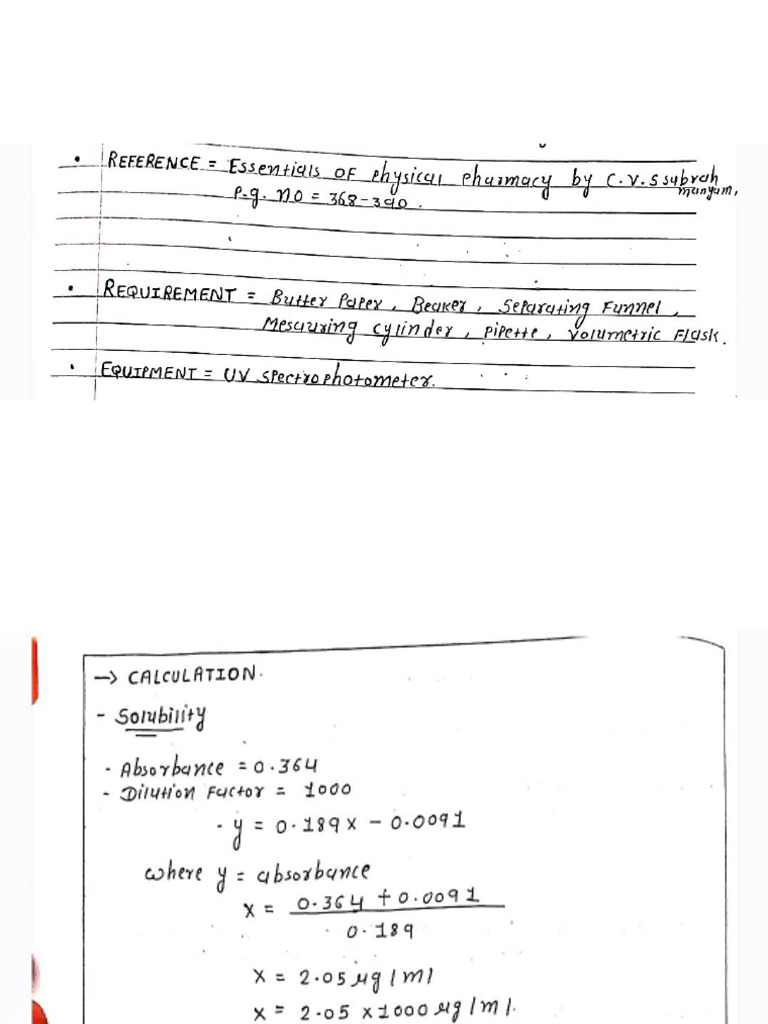 • REFERENCE = Essentials OF Physical Pharmacy by C.V.S Subrah
manyam,
P.g. no = 368-390.
• REQUIREMENT = Butter Paper, Beaker, Separating Funnel,
Measuring Cylinder, Pipette, Volumetric Flask.
• EQUIPMENT = UV Spectrophotometer.
→ CALCULATION.
- Solubility
- Absorbance = 0.364
- Dilution Factor = 1000
- y = 0.189x - 0.0091
where y = absorbance
x = 0.364 + 0.0091
0.189
x = 2.05 μg/ml
x = 2.05 x 1000 μg/ml.